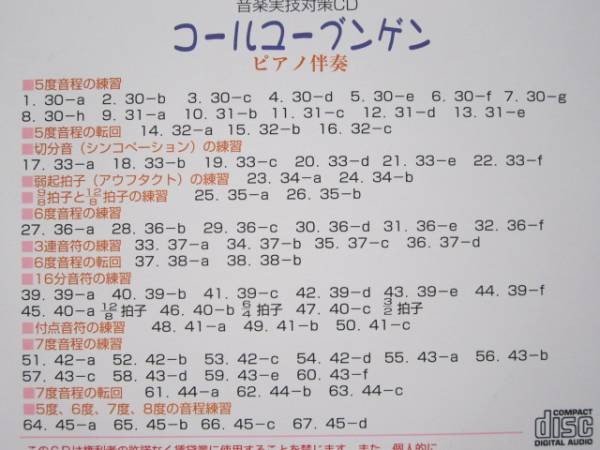 音楽実技対策CD
コールユーブンゲン
ピアノ伴奏
■5度音程の練習
1. 30-a 2. 30-b 3. 30-c 4. 30-d 5. 30-e 6. 30-f 7. 30-g
8. 30-h 9. 31-a 10. 31-b 11. 31-c 12. 31-d 13. 31-e
■5度音程の転回 14. 32-a 15. 32-b 16. 32-c
■切分音（シンコペーション）の練習
17. 33-a 18. 33-b 19. 33-c 20. 33-d 21. 33-e 22. 33-f
■弱起拍子（アウフタクト）の練習 23. 34-a 24. 34-b
■9/8拍子と12/8拍子の練習 25. 35-a 26. 35-b
■6度音程の練習
27. 36-a 28. 36-b 29. 36-c 30. 36-d 31. 36-e 32. 36-f
■3連音符の練習 33. 37-a 34. 37-b 35. 37-c 36. 37-d
■6度音程の転回 37. 38-a 38. 38-b
■16分音符の練習
39. 39-a 40. 39-b 41. 39-c 42. 39-d 43. 39-e 44. 39-f
45. 40-a 12/8拍子 46. 40-b 6/4拍子 47. 40-c 3/2拍子
■付点音符の練習 48. 41-a 49. 41-b 50. 41-c
■7度音程の練習
51. 42-a 52. 42-b 53. 42-c 54. 42-d 55. 43-a 56. 43-b
57. 43-c 58. 43-d 59. 43-e 60. 43-f
■7度音程の転回 61. 44-a 62. 44-b 63. 44-c
■5度、6度、7度、8度の音程練習
64. 45-a 65. 45-b 66. 45-c 67. 45-d
COMPACT
disc
DIGITAL AUDIO
このCDは権利者の許諾なく賃貸業に使用することを禁じます。また、個人的に